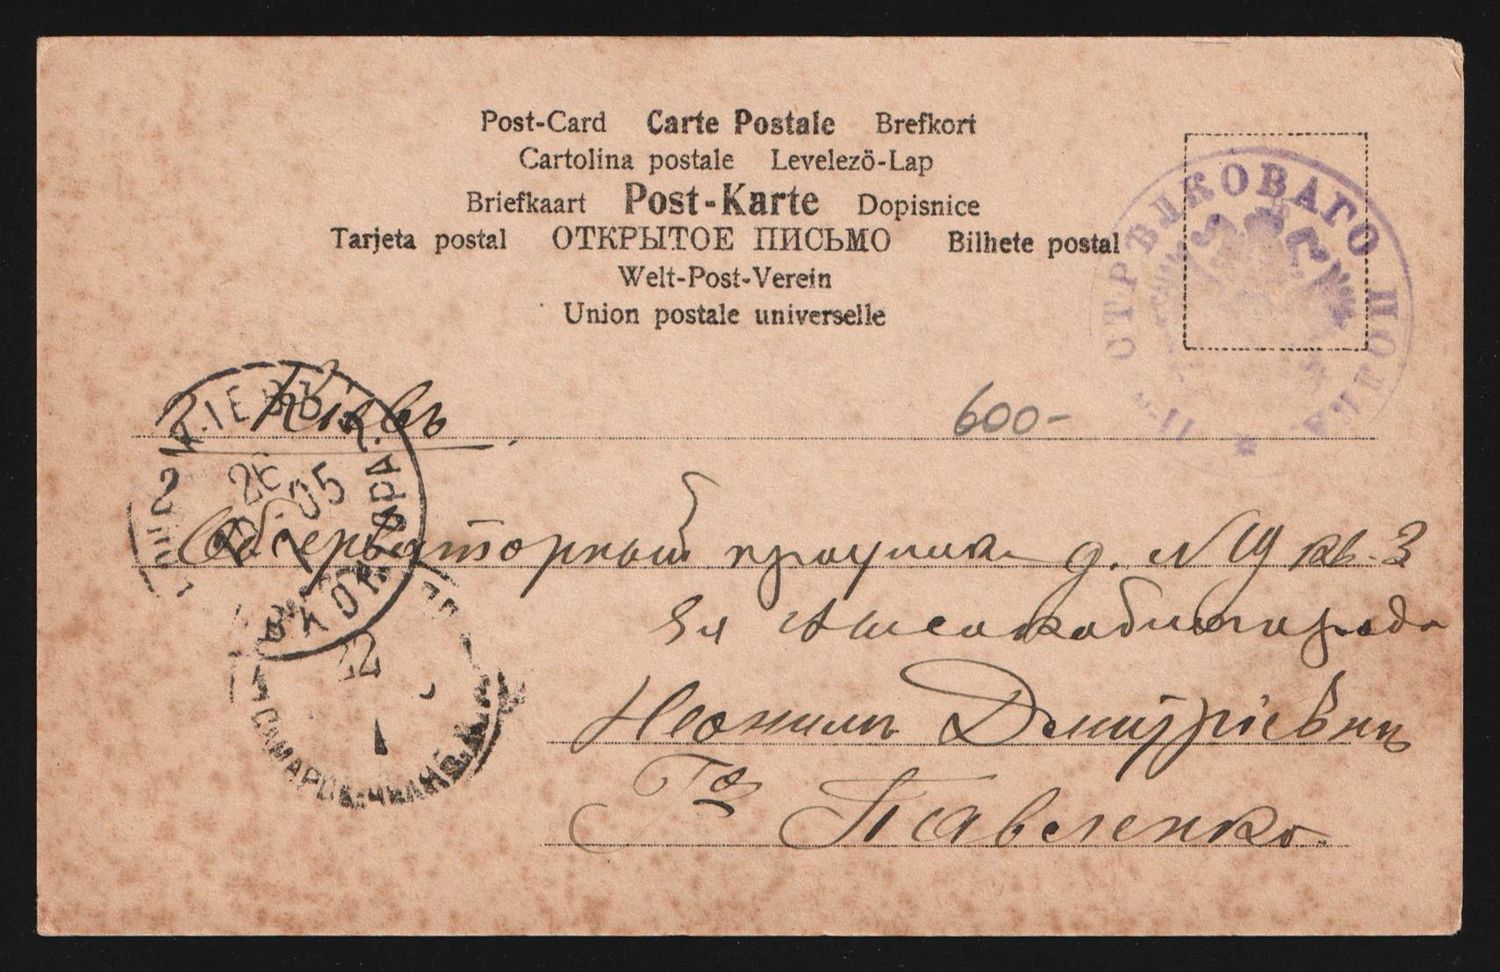 Post-Card Carte Postale Brefkort
Cartolina postale Levelezö-Lap
Briefkaart Post-Karte Dopisnice
Tarjeta postal ОТКРЫТОЕ ПИСЬМО Bilhete postal
Welt-Post-Verein
Union postale universelle
СТРѢЛКОВАГО ПОЛКА
Кіевъ
600-
КІЕВЪ
26
05
Обсерваторный д. №19 кв. 3
Ея Высокоблагород
Неонилѣ Дмитріевнѣ
Г-жѣ Павленко.
22
1
САМАРО